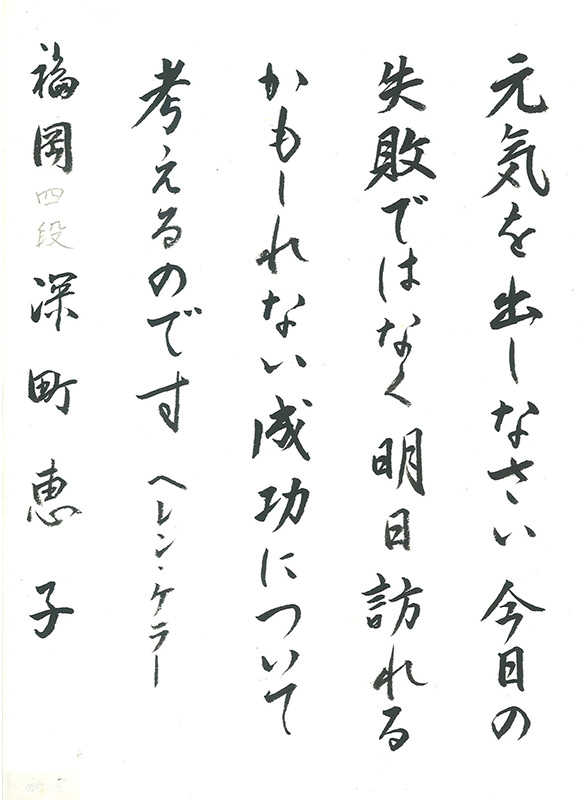 元気を出しなさい 今日の
失敗ではなく明日訪れる
かもしれない成功について
考えるのです ヘレン・ケラー
福岡 四段 深町恵子